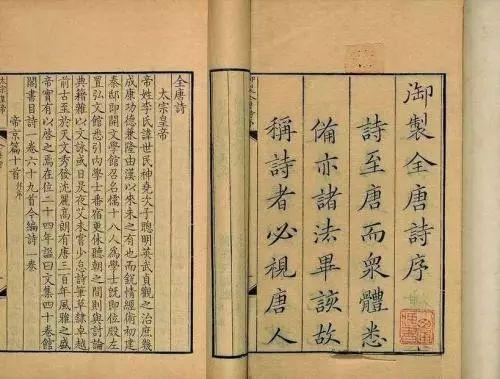 御製全唐詩序
詩至唐而衆體悉
備亦諸法畢該故
稱詩者必視唐人
全唐詩
太宗皇帝
帝姓李氏諱世民神堯次子聰明英武貞觀之治庶幾
成康功德兼隆由漢以來未之有也而銳情經術初建
秦邸即開文學館召名儒十八人為學士既即位殿左
置弘文館悉引內學士番宿更休聽朝之間則與討論
典籍雜以文詠或日昃夜艾未嘗少怠詩筆草隸卓越
前古至於天文秀發沈麗高朗有唐三百年風雅之盛
帝實有以啓之焉在位二十四年諡曰文集四十卷館
閣書目詩一卷六十九首今編詩一卷
帝京篇十首 并序
太宗皇帝